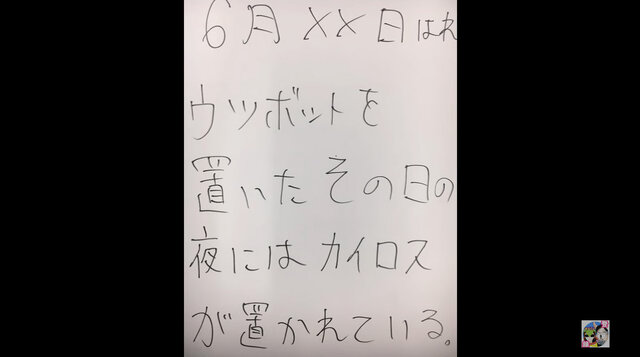 6月××日はれ
ウツボットを
置いたその日の
夜にはカイロス
が置かれている。